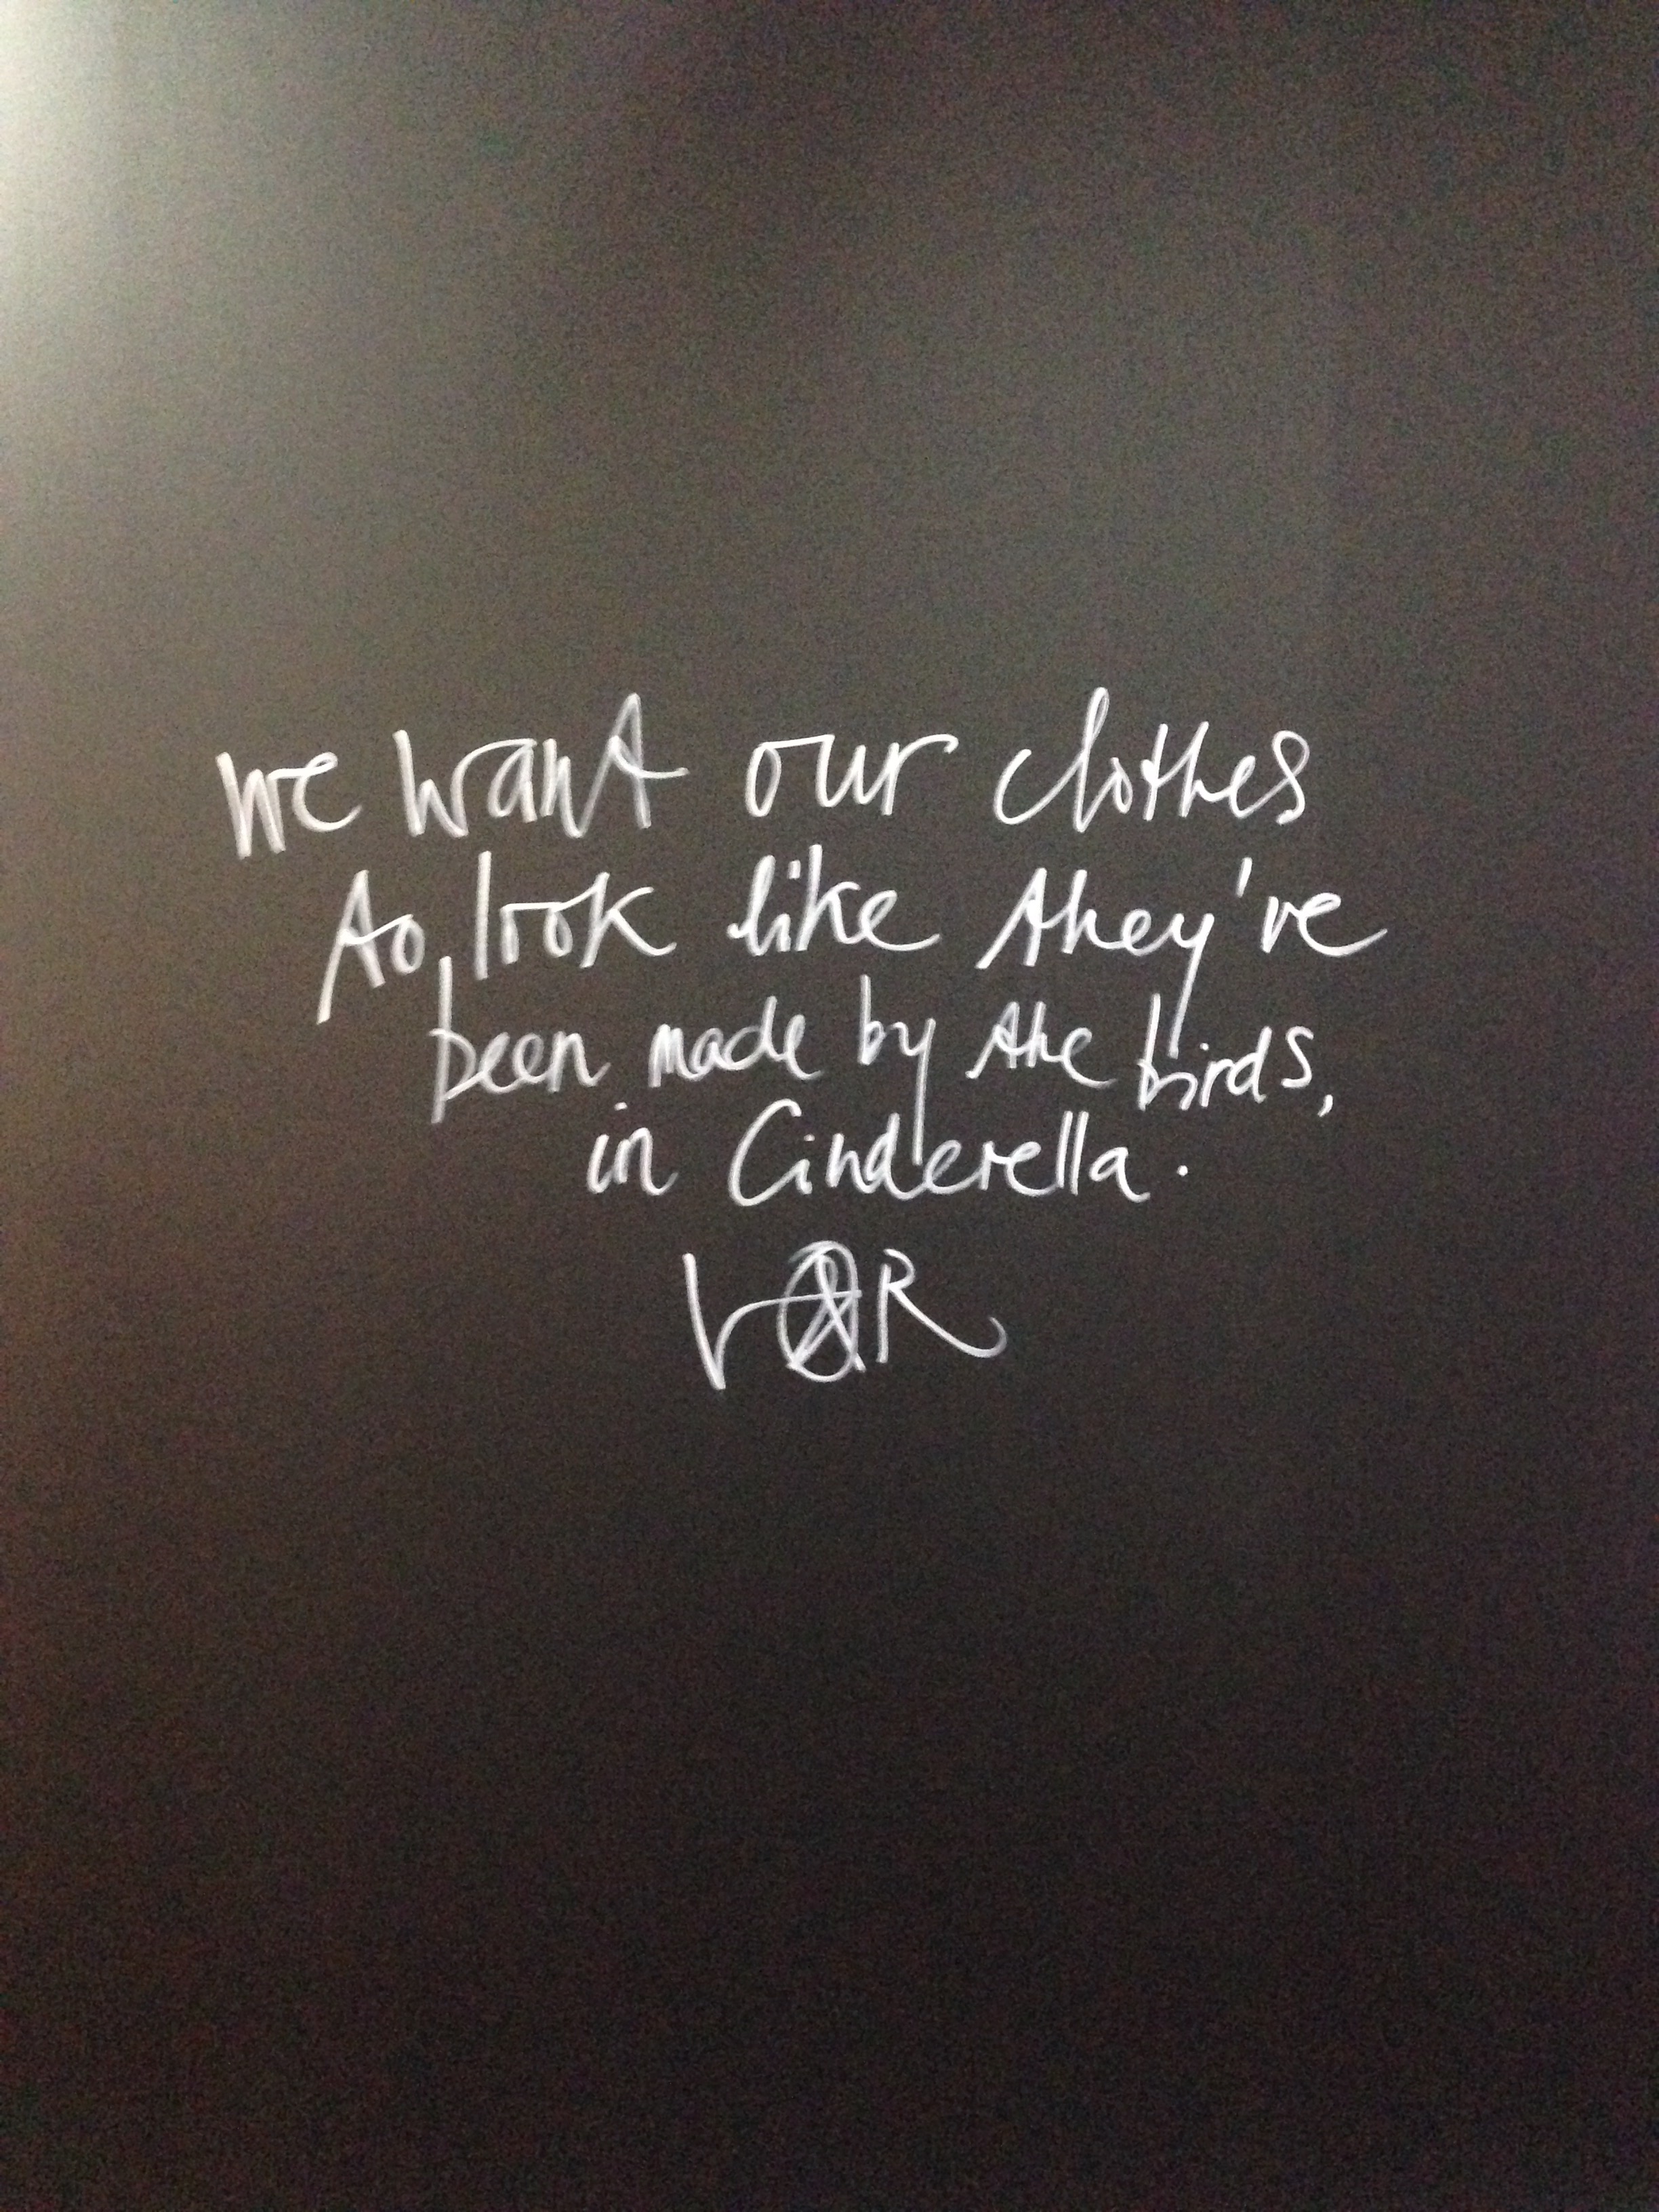 we want our clothes
to look like they've
been made by the birds,
in Cinderella.
V&R